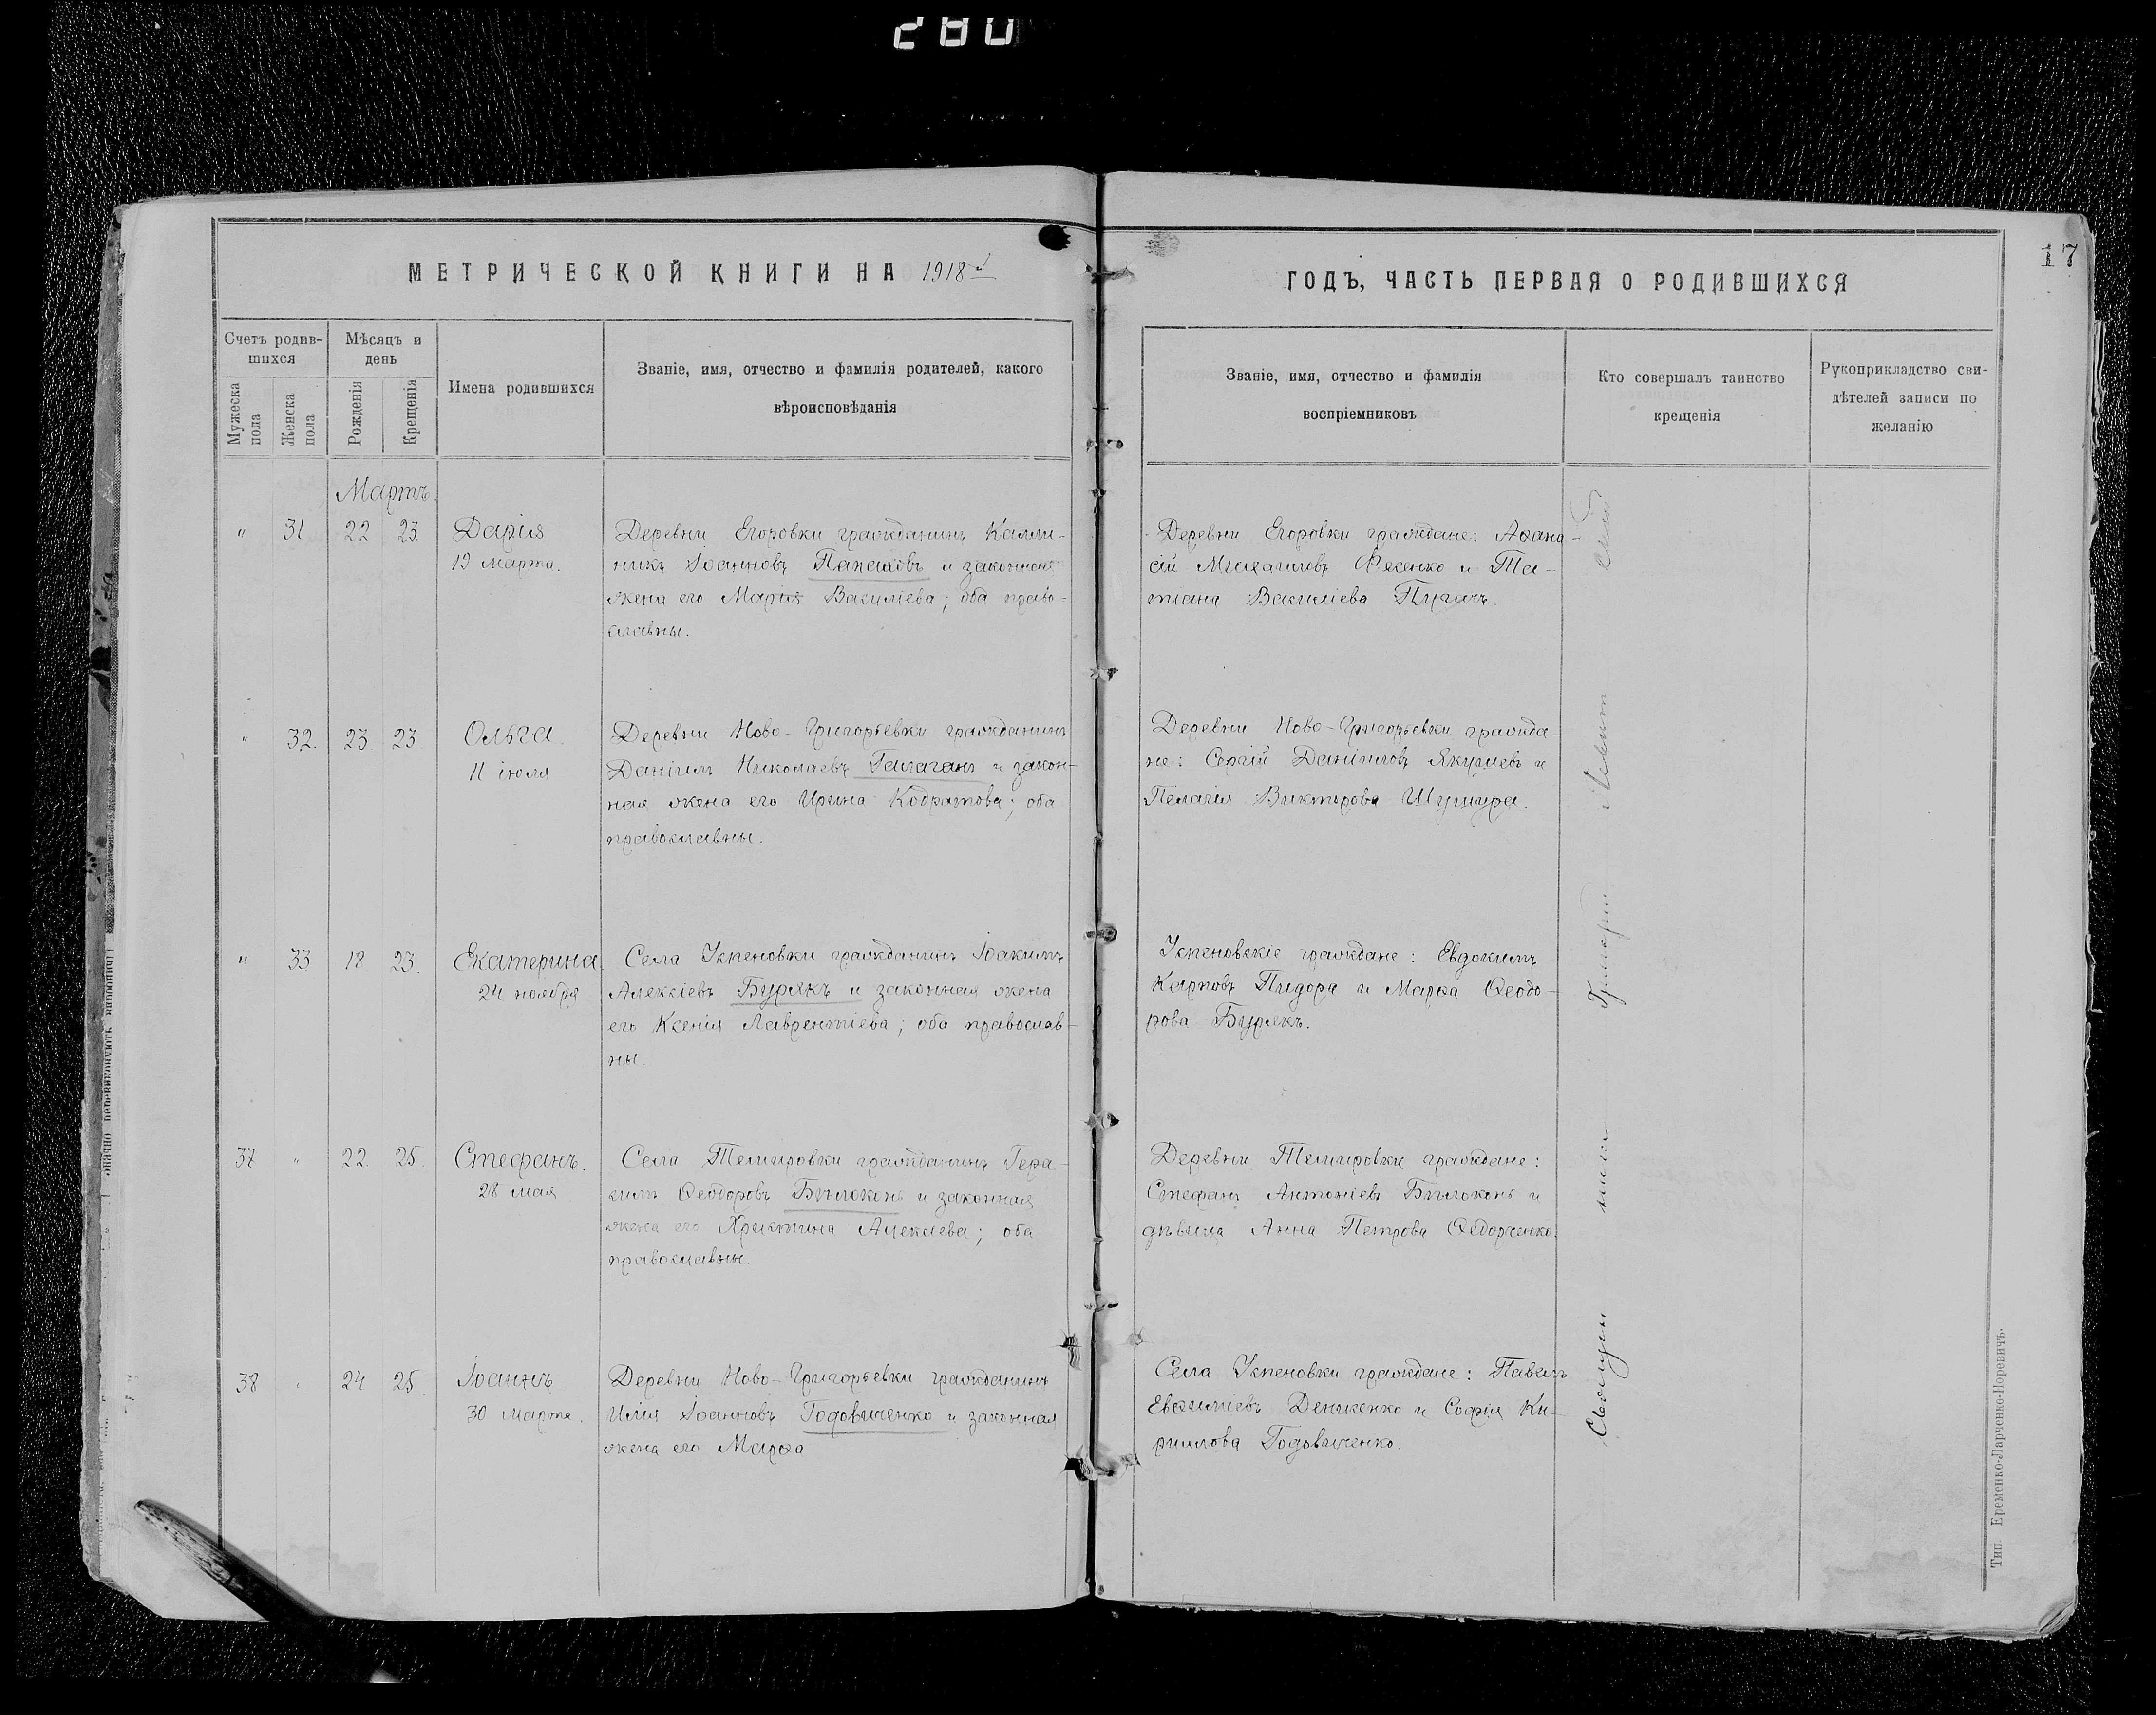 280
17
МЕТРИЧЕСКОЙ КНИГИ НА 1918й
ГОДЪ, ЧАСТЬ ПЕРВАЯ О РОДИВШИХСЯ
Счетъ родив-
шихся
Мужеска
пола
Женска
пола
Мѣсяцъ и
день
Рожденія
Крещенія
Имена родившихся
Званіе, имя, отчество и фамилія родителей, какого
вѣроисповѣданія
Званіе, имя, отчество и фамилія
воспріемниковъ
Кто совершалъ таинство
крещенія
Рукоприкладство сви-
дѣтелей записи по
желанію
Мартъ.
" 31 22 23
Дарія
19 марта.
Деревни Егоровки гражданинъ Калли-
никъ Іоанновъ и законная
жена его Марія Василіева; оба право-
славны.
Деревни Егоровки граждане: Аѳана-
сій Михаиловъ Фесенко и Та-
тіана Василіева
" 32. 23 23
Ольга.
11 іюля
Деревни Ново-Григорьевки гражданинъ
Даніилъ Николаевъ Галаганъ и закон-
ная жена его Ирина Кодратова; оба
православны.
Деревни Ново-Григорьевки гражда-
не: Сергій Даніиловъ Якушевъ и
Пелагія Викторова Шушура.
" 33 18 23.
Екатерина.
24 ноября
Села Успеновки гражданинъ Іоакимъ
Алексіевъ Бурякъ и законная жена
его Ксенія Лаврентіева; оба православ-
ны.
Успеновскіе граждане: Евдокимъ
Карповъ Пидора и Марѳа Ѳеодо-
рова Бурякъ.
37 " 22 25.
Стефанъ.
28 мая
Села Темировки гражданинъ Гера-
симъ Ѳеодоровъ Бѣлоконь и законная
жена его Христина Алексіева; оба
православны.
Деревни Темировки граждане:
Стефанъ Антоніевъ Бѣлоконь и
дѣвица Анна Петрова Ѳедорченко.
38 " 24 25.
Іоаннъ
30 Марта.
Деревни Ново-Григорьевки гражданинъ
Илія Іоанновъ Годовиченко и законная
жена его Марѳа
Села Успеновки граждане: Павелъ
Евѳиміевъ Денисенко и Софія Ки-
риллова Годовиченко.
Священникъ Григорій
Тип. Еременко-Ларченко-Поровичъ.